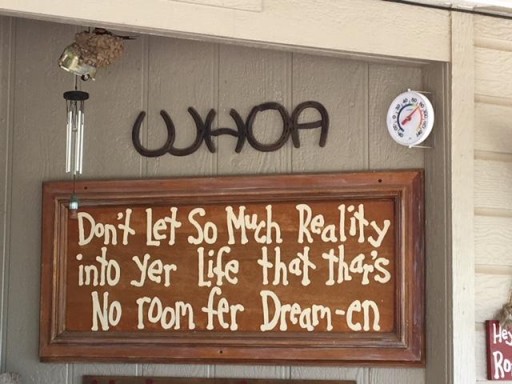 WHOA
Don't Let So Much Reality
into yer Life that thar's
No room fer Dream-en
Hey
Ro